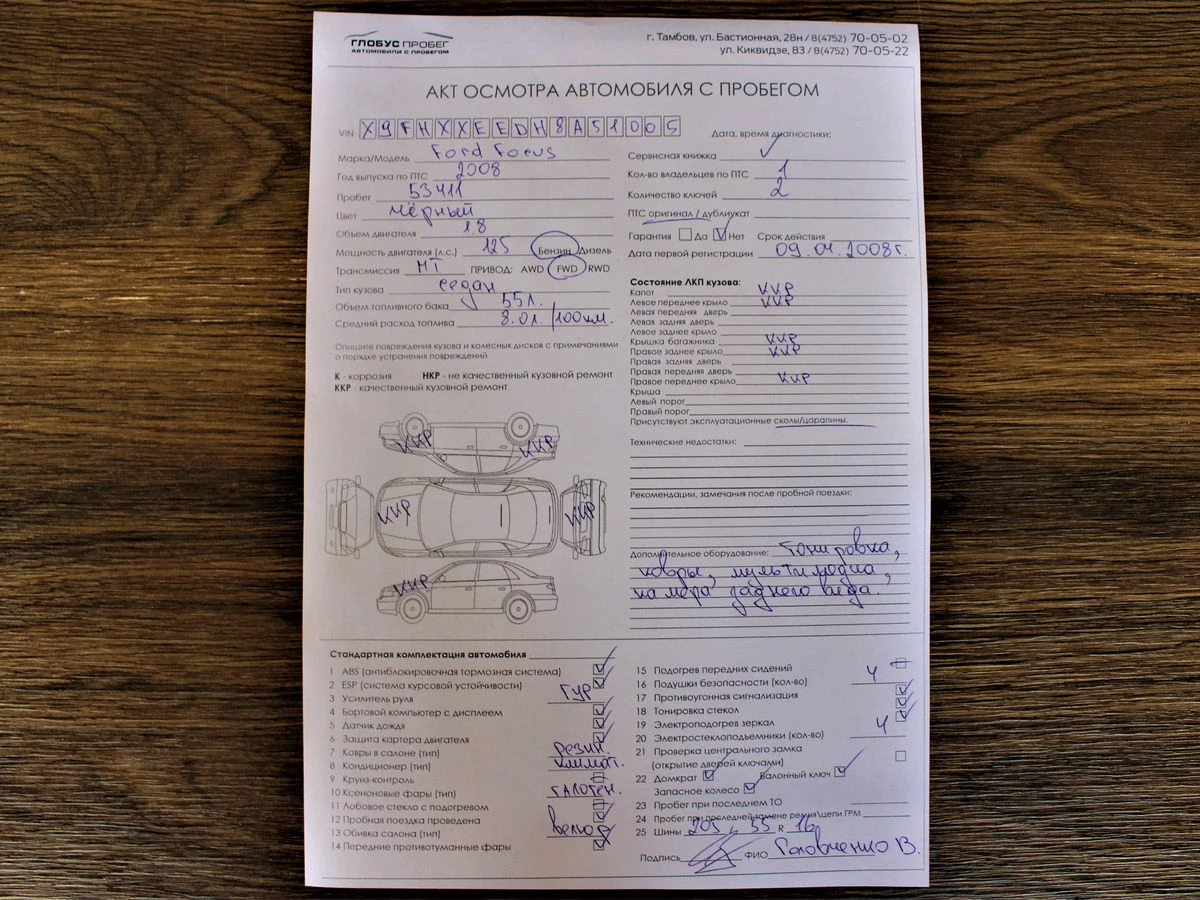 ГЛОБУС ПРОБЕГ
АВТОМОБИЛИ С ПРОБЕГОМ
г. Тамбов, ул. Бастионная, 28н / 8(4752) 70-05-02
ул. Киквидзе, 83 / 8(4752) 70-05-22
АКТ ОСМОТРА АВТОМОБИЛЯ С ПРОБЕГОМ
VIN X9FHXXEEDH8A51005
Дата, время диагностики:
Марка/Модель Ford Focus
Год выпуска по ПТС 2008
Пробег 53411
Цвет чёрный
Объем двигателя 1,8
Мощность двигателя (л.с.) 125 Бензин Дизель
Трансмиссия МТ ПРИВОД: AWD FWD RWD
Тип кузова седан
Объем топливного бака 55л.
Средний расход топлива 8.0л. /100км.
Опишите повреждения кузова и колесных дисков с примечаниями
о порядке устранения повреждений
К - коррозия НКР - не качественный кузовной ремонт
ККР - качественный кузовной ремонт
ККР ККР
ККР ККР
ККР
Сервисная книжка ✓
Кол-во владельцев по ПТС 1
Количество ключей 2
ПТС оригинал / дубликат
Гарантия Да Нет Срок действия
Дата первой регистрации 09.04.2008г.
Состояние ЛКП кузова:
Капот ККР
Левое переднее крыло ККР
Левая передняя дверь
Левая задняя дверь
Левое заднее крыло
Крышка багажника ККР
Правое заднее крыло ККР
Правая задняя дверь
Правая передняя дверь
Правое переднее крыло ККР
Крыша
Левый порог
Правый порог
Присутствуют эксплуатационные сколы/царапины.
Технические недостатки:
Рекомендации, замечания после пробной поездки:
Дополнительное оборудование: тонировка,
ковры, мультимедиа,
камера заднего вида.
Стандартная комплектация автомобиля
1 ABS (антиблокировочная тормозная система)
2 ESP (система курсовой устойчивости)
3 Усилитель руля ГУР
4 Бортовой компьютер с дисплеем
5 Датчик дождя
6 Защита картера двигателя
7 Ковры в салоне (тип) резин.
8 Кондиционер (тип) климат.
9 Круиз-контроль
10 Ксеноновые фары (тип) галоген.
11 Лобовое стекло с подогревом
12 Пробная поездка проведена
13 Обивка салона (тип) велюр
14 Передние противотуманные фары
15 Подогрев передних сидений
16 Подушки безопасности (кол-во) 4
17 Противоугонная сигнализация
18 Тонировка стекол
19 Электроподогрев зеркал
20 Электростеклоподъемники (кол-во) 4
21 Проверка центрального замка
(открытие дверей ключами)
22 Домкрат Балонный ключ
Запасное колесо
23 Пробег при последнем ТО
24 Пробег при последней замене ремня\цепи ГРМ
25 Шины 205 55 R 16
Подпись ФИО Головченко В.